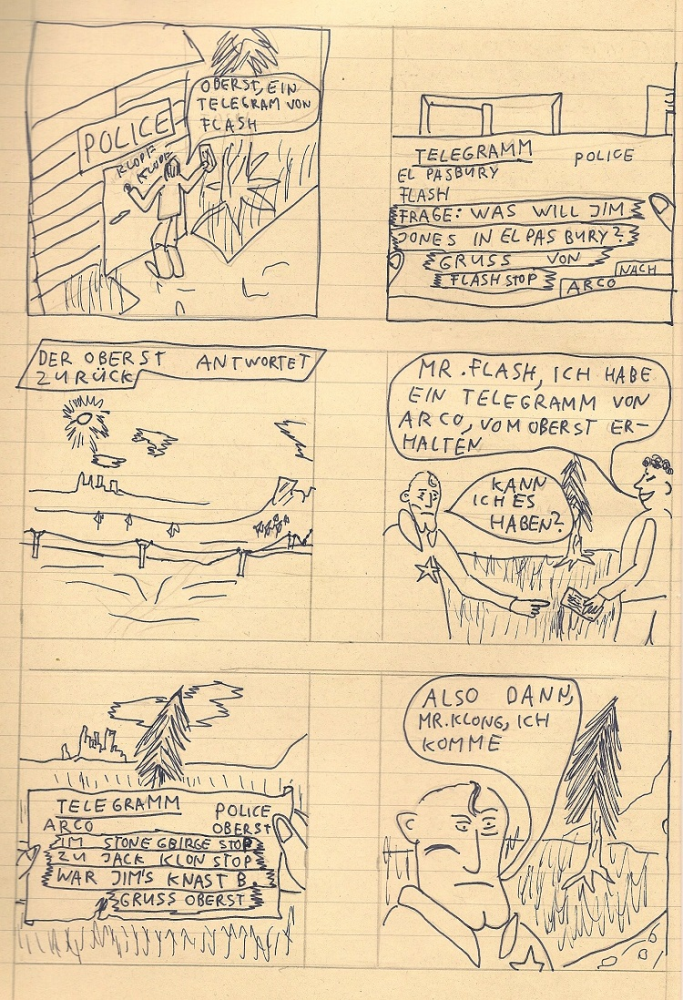 OBERST, EIN
TELEGRAM VON
FLASH
POLICE
KLOPF
KLOPF
TELEGRAMM POLICE
EL PASBURY
FLASH
FRAGE: WAS WILL JIM
JONES IN EL PAS BURY?
GRUSS VON
FLASH STOP
NACH
ARCO
DER OBERST ANTWORTET
ZURÜCK
MR. FLASH, ICH HABE
EIN TELEGRAMM VON
ARCO, VOM OBERST ER-
HALTEN
KANN
ICH ES
HABEN?
TELEGRAMM POLICE
ARCO OBERST
IM STONE GBIRGE STOP
ZU JACK KLON STOP
WAR JIM'S KNAST B.
GRUSS OBERST
ALSO DANN,
MR. KLONG, ICH
KOMME